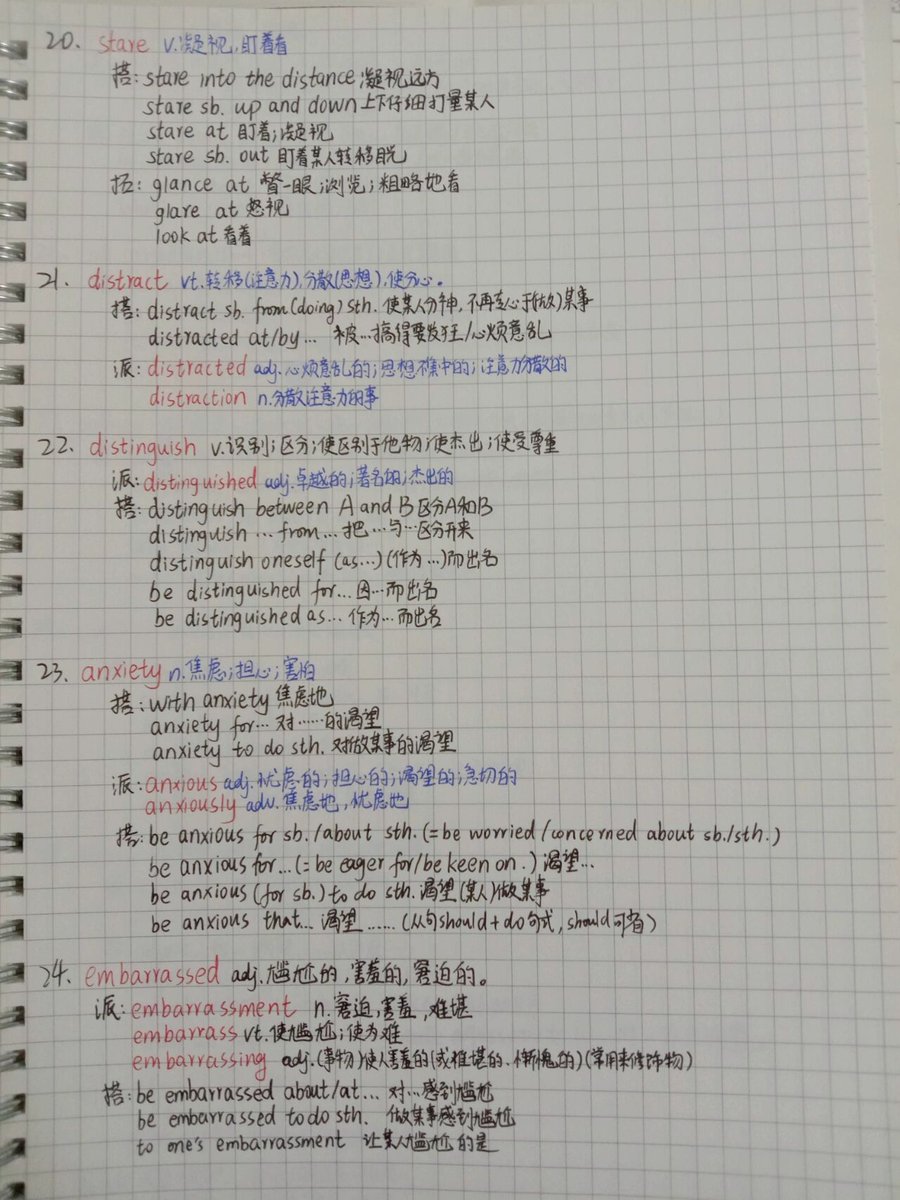 20. stare v.凝视,盯着看
搭: stare into the distance 凝视远方
stare sb. up and down 上下仔细打量某人
stare at 盯着;凝视
stare sb. out 盯着某人转移目光
拓: glance at 瞥一眼;浏览;粗略地看
glare at 怒视
look at 看着
21. distract vt.转移(注意力),分散(思想),使分心。
搭: distract sb. from (doing) sth. 使某人分神,不再专心于(做)某事
distracted at/by... 被...搞得要发狂/心烦意乱
派: distracted adj.心烦意乱的;思想不集中的;注意力分散的
distraction n.分散注意力的事
22. distinguish v.识别;区分;使区别于他物;使杰出;使受尊重
派: distinguished adj.卓越的;著名的;杰出的
搭: distinguish between A and B 区分A和B
distinguish ... from... 把...与...区分开来
distinguish oneself (as...) (作为...)而出名
be distinguished for... 因...而出名
be distinguished as... 作为...而出名
23. anxiety n.焦虑;担心;害怕
搭: with anxiety 焦虑地
anxiety for... 对......的渴望
anxiety to do sth. 对做某事的渴望
派: anxious adj.忧虑的;担心的;渴望的;急切的
anxiously adv.焦虑地,忧虑地
搭: be anxious for sb. /about sth. (=be worried/concerned about sb./sth.)
be anxious for... (=be eager for/be keen on.) 渴望...
be anxious (for sb.) to do sth. 渴望(某人)做某事
be anxious that... 渴望...... (从句should+do句式,should可省)
24. embarrassed adj.尴尬的,害羞的,窘迫的。
派: embarrassment n.窘迫,害羞,难堪
embarrass vt.使尴尬;使为难
embarrassing adj.(事物)使人害羞的(或难堪的、惭愧的)(常用来修饰物)
搭: be embarrassed about/at... 对...感到尴尬
be embarrassed to do sth. 做某事感到尴尬
to one's embarrassment 让某人尴尬的是